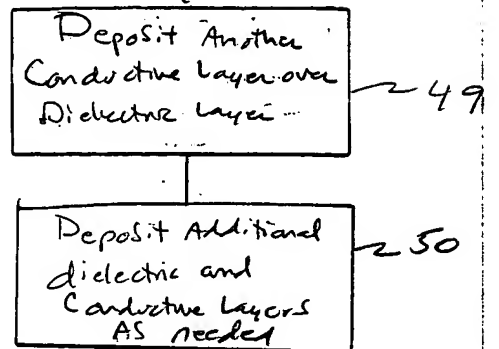 Deposit Another
Conductive Layer over
Dielectric Layer
49
Deposit Additional
dielectric and
Conductive Layers
As needed
50